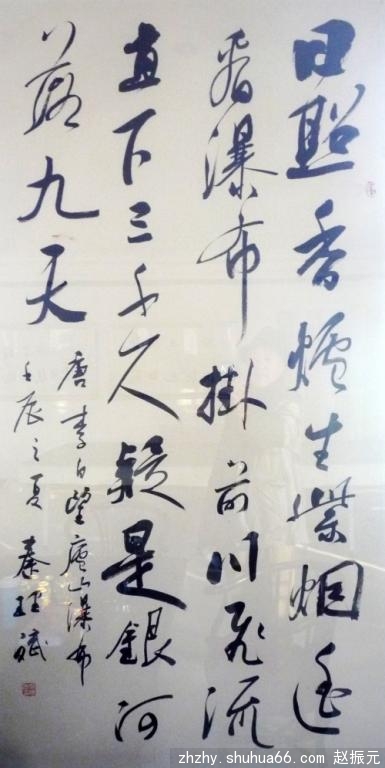 日照香爐生紫烟遥
看瀑布掛前川飛流
直下三千尺疑是銀河
落九天
唐李白望廬山瀑布
壬辰之夏 秦
zhzhy.shuhua66.com 赵振元